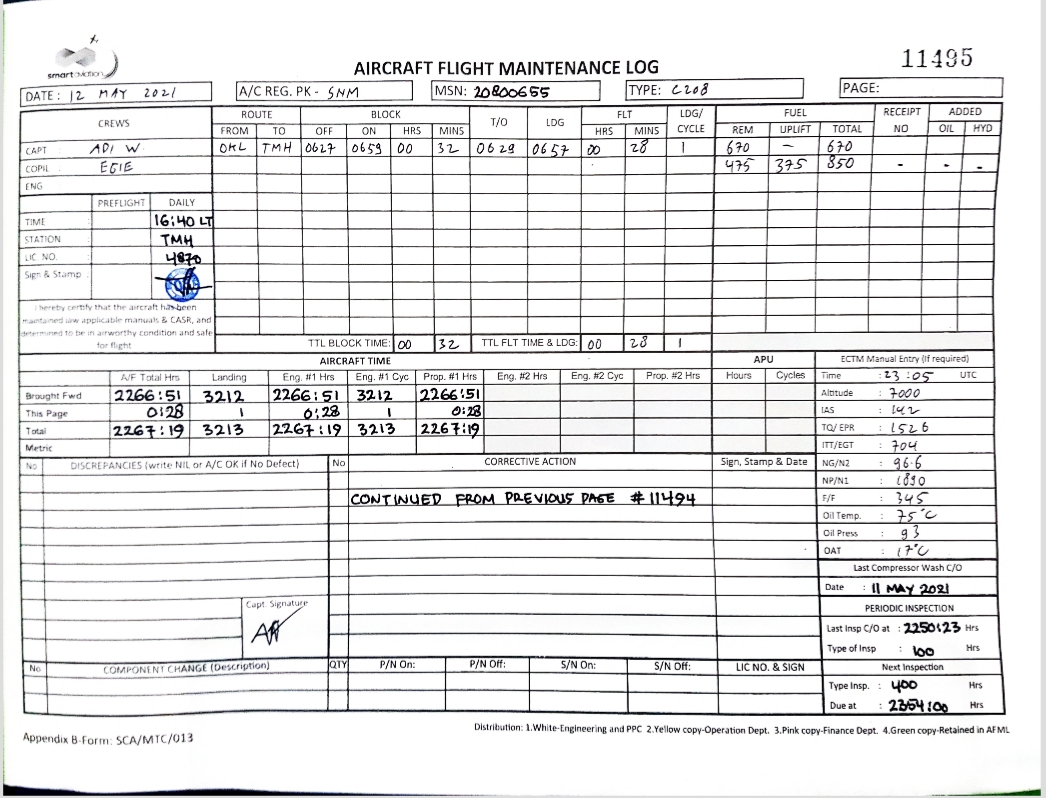 smart aviation
AIRCRAFT FLIGHT MAINTENANCE LOG
11495
DATE: 12 MAY 2021
A/C REG. PK - SNM
MSN: 20800655
TYPE: C208
PAGE:
CREWS ROUTE BLOCK T/O LDG FLT LDG/ CYCLE FUEL RECEIPT NO ADDED
FROM TO OFF ON HRS MINS HRS MINS REM UPLIFT TOTAL OIL HYD
CAPT : ADI W OKL TMH 0627 0659 00 32 0629 0657 00 28 1 670 – 670
COPIL : EGIE 475 375 850 - - -
ENG
PREFLIGHT DAILY
TIME : 16:40 LT
STATION : TMH
LIC. NO. : 4870
Sign & Stamp :
I hereby certify that the aircraft has been
maintained iaw applicable manuals & CASR, and
determined to be in airworthy condition and safe
for flight
TTL BLOCK TIME: 00 32 TTL FLT TIME & LDG: 00 28 1
AIRCRAFT TIME APU ECTM Manual Entry (If required)
A/F Total Hrs Landing Eng. #1 Hrs Eng. #1 Cyc Prop. #1 Hrs Eng. #2 Hrs Eng. #2 Cyc Prop. #2 Hrs Hours Cycles
Brought Fwd 2266:51 3212 2266:51 3212 2266:51
This Page 0:28 1 0:28 1 0:28
Total 2267:19 3213 2267:19 3213 2267:19
Metric
Time : 23:05 UTC
Altitude : 7000
IAS : 142
TQ/ EPR : 1526
ITT/EGT : 704
NG/N2 : 96.6
NP/N1 : 1890
F/F : 345
Oil Temp. : 75°C
Oil Press : 93
OAT : 17°C
No DISCREPANCIES (write NIL or A/C OK if No Defect) No CORRECTIVE ACTION Sign, Stamp & Date
CONTINUED FROM PREVIOUS PAGE #11494
Capt. Signature
Last Compressor Wash C/O
Date : 11 MAY 2021
PERIODIC INSPECTION
Last Insp C/O at : 2250:23 Hrs
Type of Insp : 100 Hrs
Next Inspection
Type Insp. : 400 Hrs
Due at : 2354:00 Hrs
No COMPONENT CHANGE (Description) QTY P/N On: P/N Off: S/N On: S/N Off: LIC NO. & SIGN
Distribution: 1.White-Engineering and PPC 2.Yellow copy-Operation Dept. 3.Pink copy-Finance Dept. 4.Green copy-Retained in AFML
Appendix B-Form: SCA/MTC/013